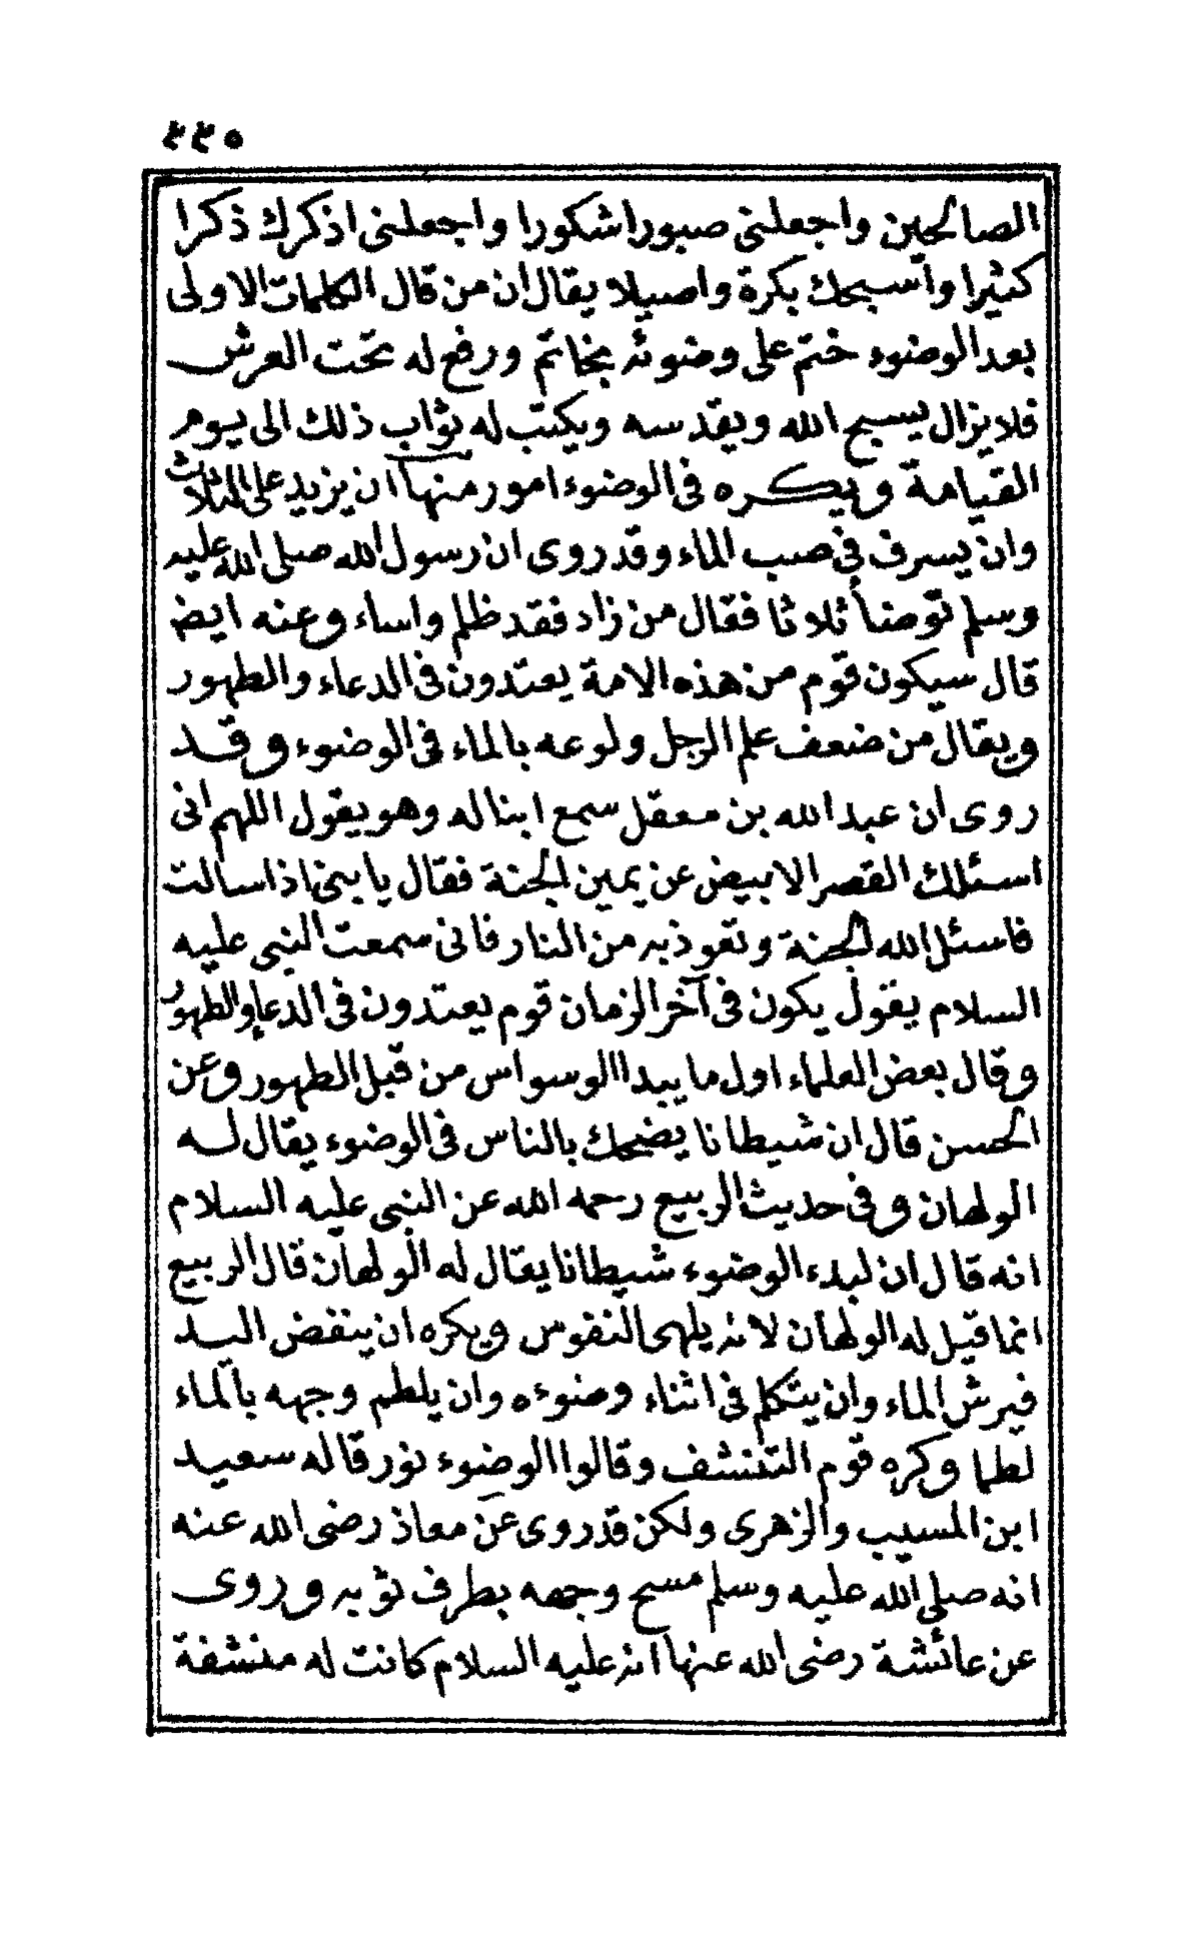 ٤٤٥
الصالحين واجعلنى صبورا شكورا واجعلنى اذكرك ذكرا
كثيرا واسبحك بكرة واصيلا يقال ان من قال الكلمات الاولى
بعد الوضوء ختم على وضوئه بخاتم ورفع له تحت العرش
فلا يزال يسبح الله ويقدسه ويكتب له ثواب ذلك الى يوم
القيامة ويكره فى الوضوء امور منها ان يزيد على الثلاث
وان يسرف فى صب الماء وقد روى ان رسول الله صلى الله عليه
وسلم توضأ ثلاثا فقال من زاد فقد ظلم واساء وعنه ايض
قال سيكون قوم من هذه الامة يعتدون فى الدعاء والطهور
ويقال من ضعف علم الرجل ولوعه بالماء فى الوضوء وقد
روى ان عبد الله بن معقل سمع ابنا له وهو يقول اللهم انى
اسئلك القصر الابيض عن يمين الجنة فقال يا بنى اذا سالت
فاسئل الله الجنة وتعوذ به من النار فانى سمعت النبى عليه
السلام يقول يكون فى آخر الزمان قوم يعتدون فى الدعاء والطهور
وقال بعض العلماء اول ما يبدا الوسواس من قبل الطهور وعن
الحسن قال ان شيطانا يضحك بالناس فى الوضوء يقال له
الولهان وفى حديث الربيع رحمه الله عن النبى عليه السلام
انه قال ان لبدء الوضوء شيطانا يقال له الولهان قال الربيع
انما قيل له الولهان لانه يلهى النفوس ويكره ان ينفض اليد
فيرش الماء وان يتكلم فى اثناء وضوءه وان يلطم وجهه بالماء
لطما وكره قوم التنشف وقالوا الوضوء نور قاله سعيد
ابن المسيب والزهرى ولكن قد روى عن معاذ رضى الله عنه
انه صلى الله عليه وسلم مسح وجهه بطرف ثوبه وروى
عن عائشة رضى الله عنها انه عليه السلام كانت له منشفة